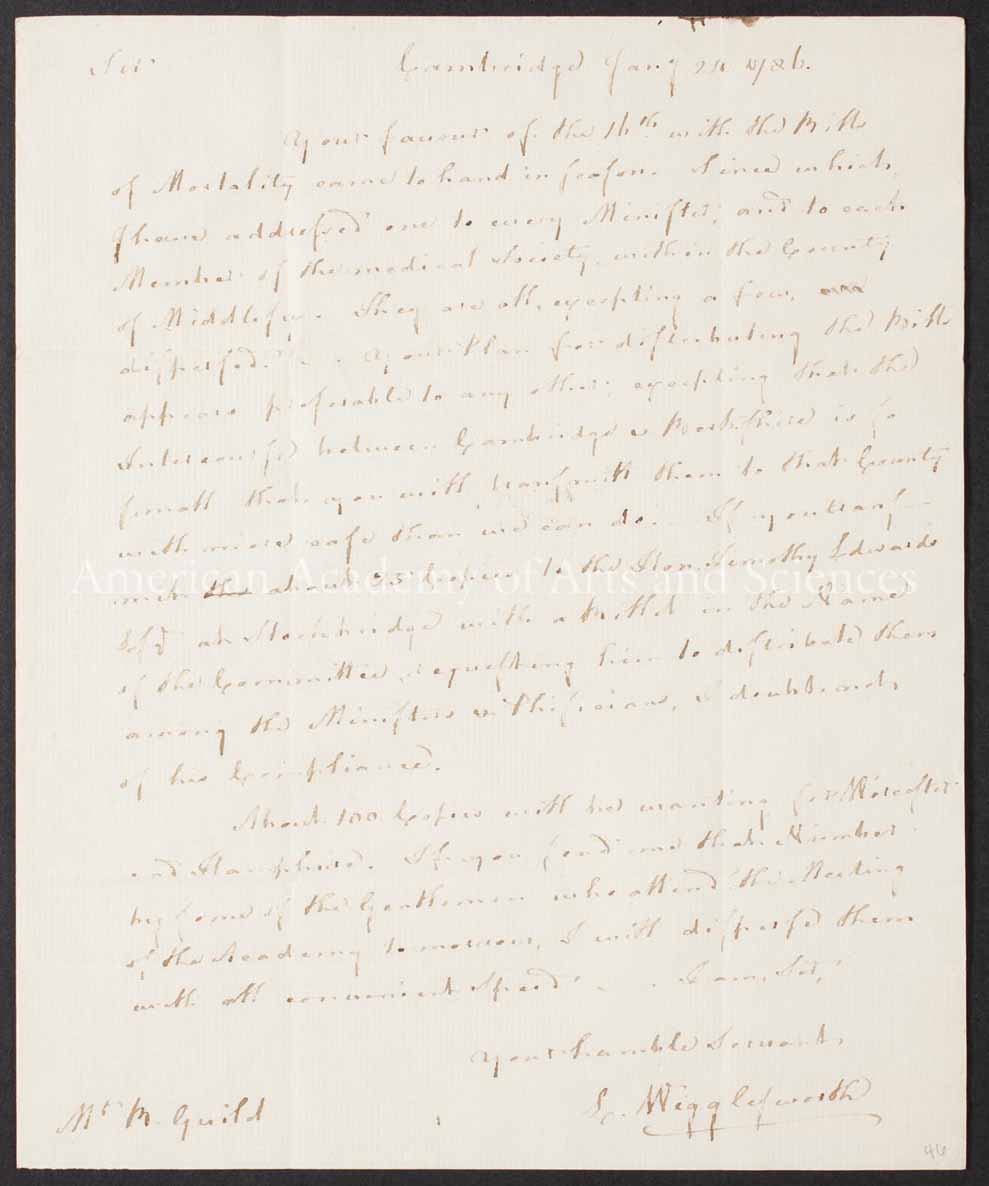 Sir Cambridge Jany 24 1786.
Your favour of the 16th with the Bills
of Mortality came to hand in season. Since which,
I have addressed one to every Minister, and to each
Member of the medical Society within the County
of Middlesex. They are all, excepting a few,
dispersed. Your Plan for distributing the Bills
appears preferable to any other; excepting that the
Intercourse between Cambridge & Berkshire is so
small that you will transmitt them to that County
with more ease than we can do. If you trans-
mit about 25 Copies to the Hon. Timothy Edwards
Esqr at Stockbridge with a Billet in the Name
of the Committee requesting him to distribute them
among the Ministers & Phisicians, I doubt not,
of his Compliance.
About 100 Copies will be wanting for Worcester
and Hampshire. If you send me that Number
by some of the Gentlemen who attend the Meeting
of the Academy to morrow, I will disperse them
with all convenient Speed. I am, Sir,
your humble Servant,
E. Wigglesworth
Mr B. Guild
46
American Academy of Arts and Sciences